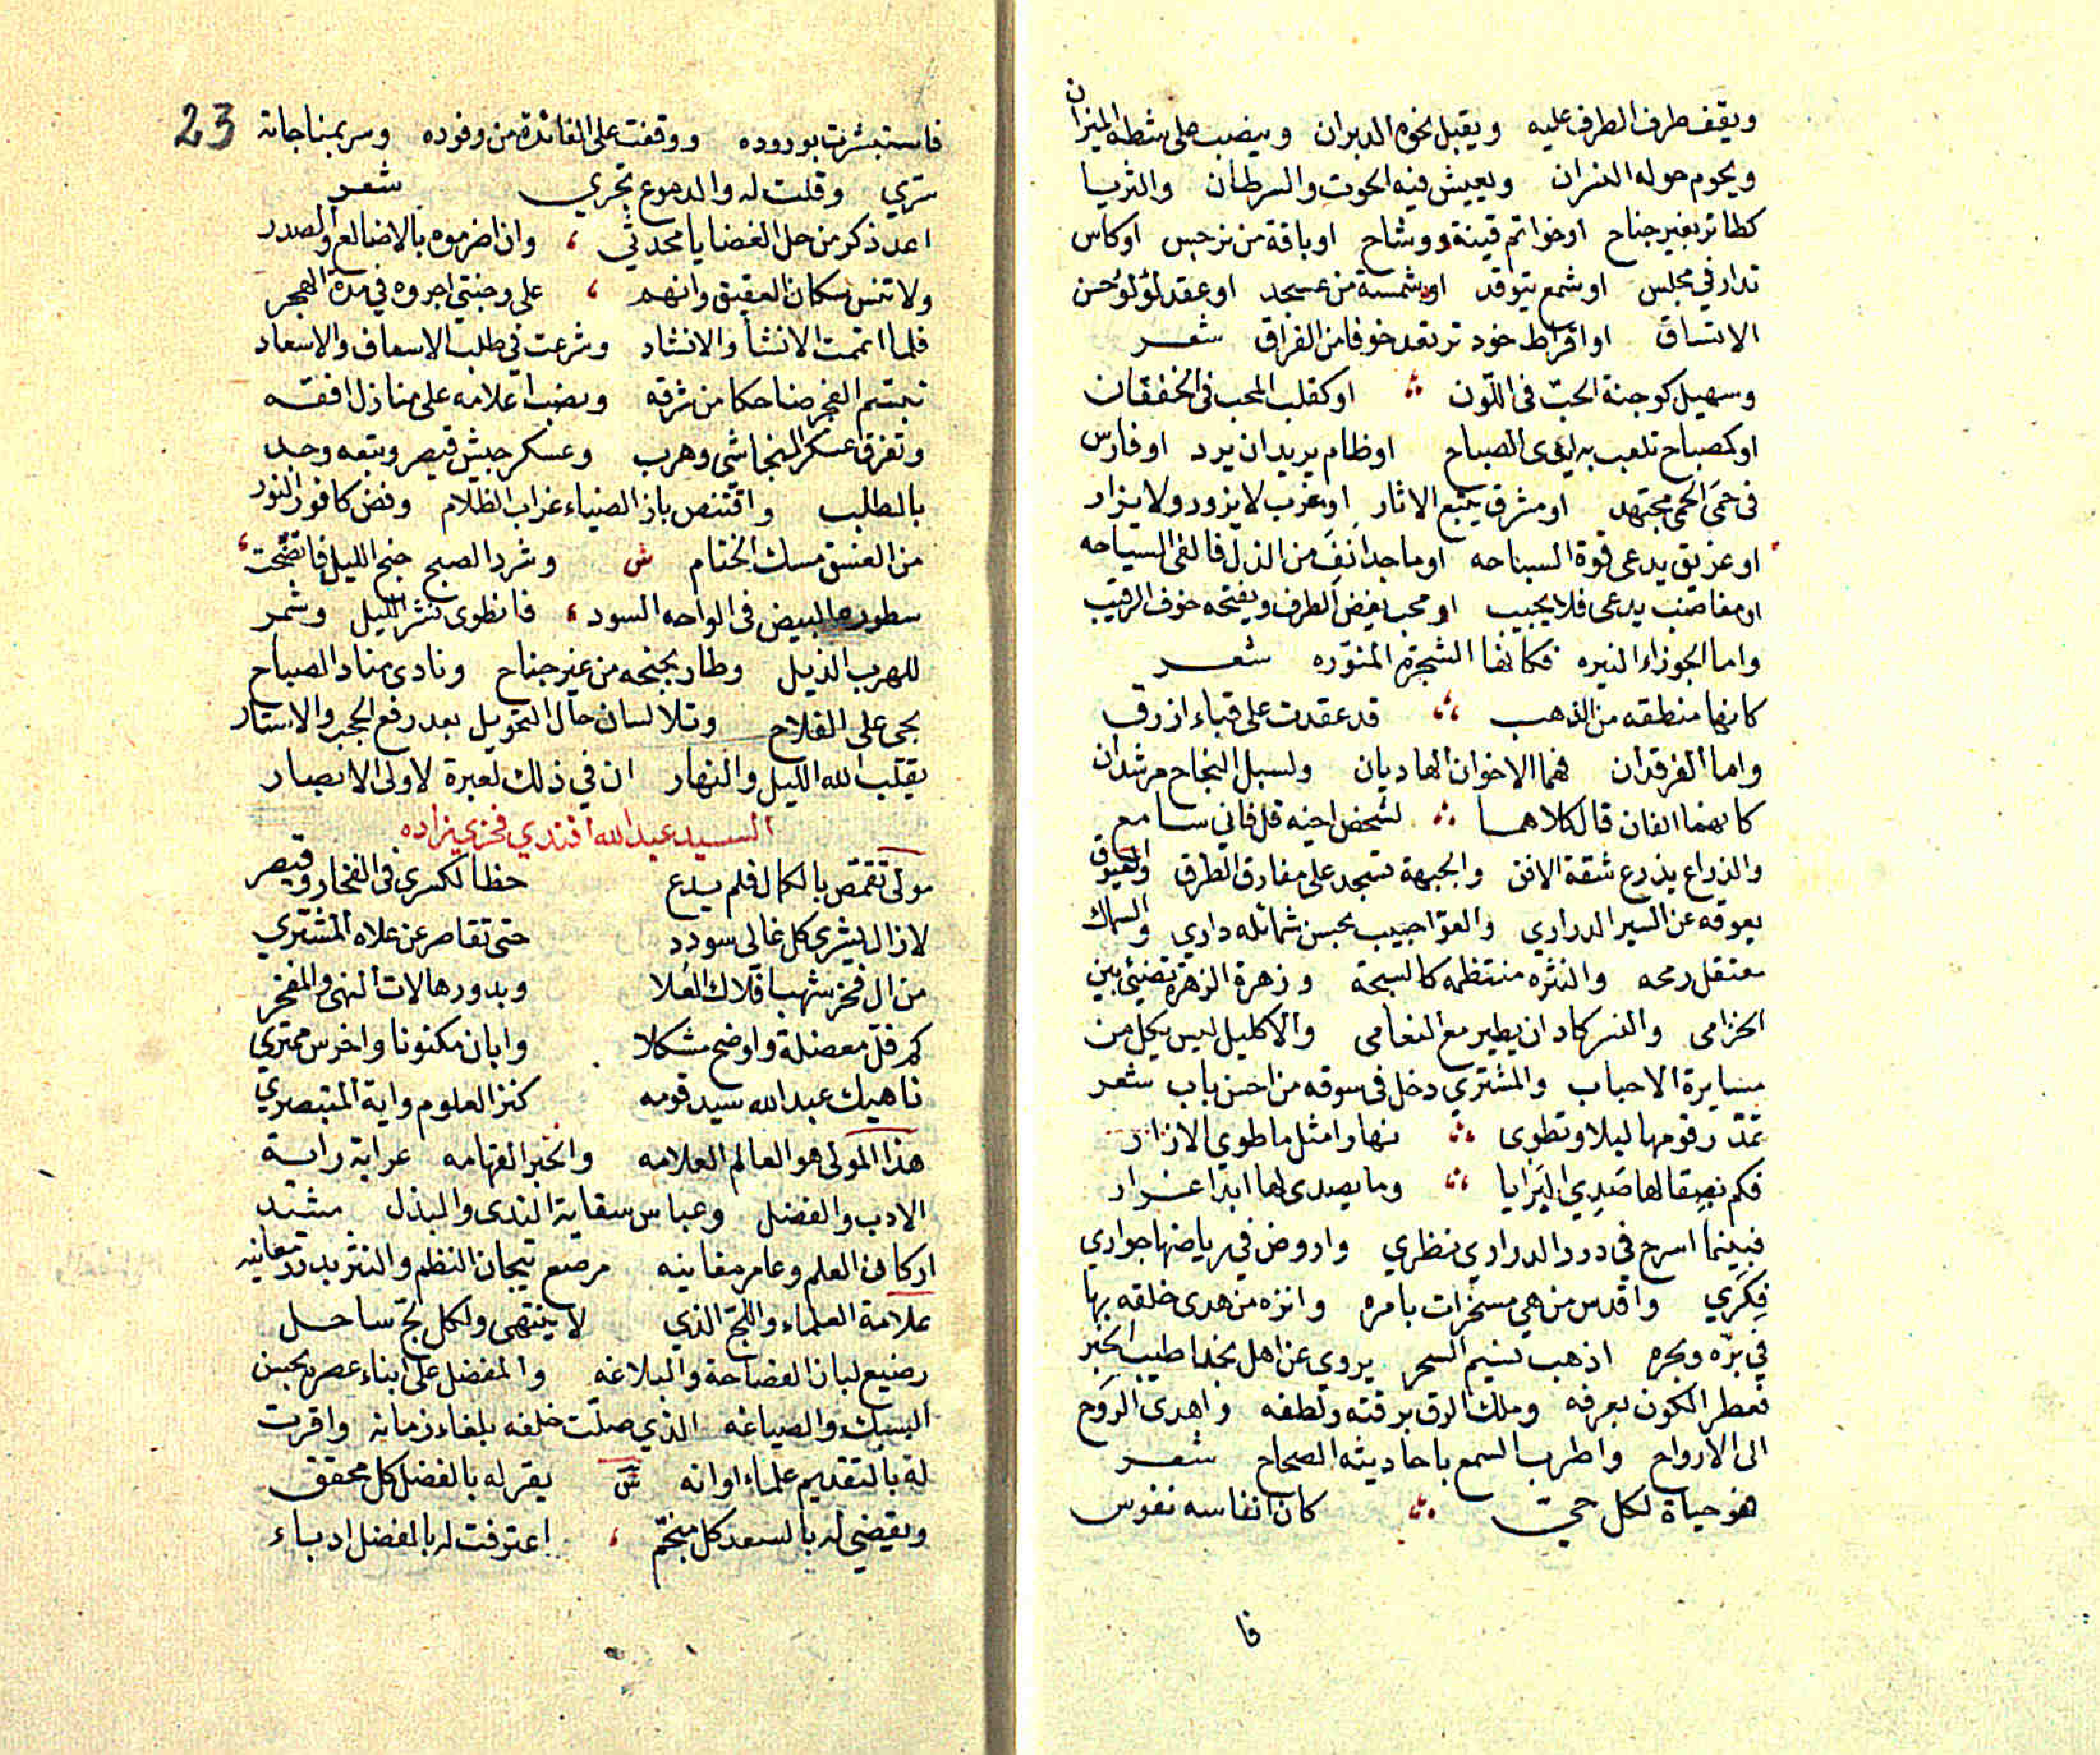 ويقف طرف الطرف عليه ويقبل نحوه الدبران وينصب على شطه الميزان
ويحوم حوله النسران ويعيش فيه الحوت والسرطان والثريا
كطائر بغير جناح او خواتم قينة ووشاح او باقة من نرجس او كاس
تدار في مجلس او شمع يتوقد او شمسة من عسجد او عقد لؤلؤ حسن
الاتساق او اقراط خود ترتعد خوفا من الفراق شعر
وسهيل كوجنة الحب فى اللون او كقلب المحب فى الخفقان
او كمصباح تلعب به ايدى الصباح او ظام يريد ان يرد او فارس
فى حمى الحمى مجتهد او مشرق يتبع الاثار او غرب لا يزور ولا يزار
او غريق يدعى قوة السباحه او ماجد انف من الذل فالفى السياحه
او مغاضب يدعى فلا يجيب او محب يغض الطرف ويفتحه خوف الرقيب
واما الجوزاء النيره فكانها الشجرة المنوره شعر
كانها منطقه من الذهب قد عقدت على قباء ازرق
واما الفرقدان فهما الاخوان الهاديان ولسبل النجاح مرشدان
كانهما الفان قال كلاهما لشخص اخيه قل فاني سامع
والذراع يذرع شقة الافق والجبهة تسجد على مفارق الطرق والعيوق
يعوقه عن السير الدراري والعوا حبيب بحسن شمائله داري والسماك
معتقل رمحه والنثره منتظمه كالسبحة وزهرة الزهرة تضيئ بين
الخزامى والنسر كاد ان يطير مع النعامى والاكليل ليس يكل من
مسايرة الاحباب والمشتري دخل فى سوقه من احسن باب شعر
تمد رقومها ليلا وتطوى نهارا مثل ما طوي الازار
فكم بصقالها صدي البرايا وما يصدى لها ابدا غرار
فبينما اسرح في درر الدراري نظري واروض في رياضها جواري
فكري واقدس من هي مسخرات بامره وانزه من هدى خلقه بها
في بره وبحره اذ هب نسيم السحر يروي عن اهل نجد اطيب الخبر
فعطر الكون بعرفه وملك الرق برقته ولطفه واهدى الروح
الى الارواح واطرب السمع باحاديثه الصحاح شعر
هو حياة لكل حي كان انفاسه نفوس
فا
23
فاستبشرت بوروده ووقفت على الفائدة من وفوده وسر بمناجاته
سري وقلت له والدموع تجري شعر
اعد ذكر من حل الغضا يا محدثي وان اضرموه بالاضالع والصدر
ولا تنس سكان العقيق وانهم على وجنتي اجروه في مدة الهجر
فلما اتممت الانشا والانشاد وشرعت في طلب الاسعاف والاسعاد
تبسم الفجر ضاحكا من شرقه ونصب اعلامه على منازل افقه
وتفرق عسكر النجاشى وهرب وعسكر جيش قيصر وتبعه وجد
بالطلب واقتنص باز الضياء غراب الظلام وفض كافور النور
من الغسق مسك الختام ش وشرد الصبح جنح الليل فاتضحت
سطوره البيض فى الواحه السود فانطوى نشر الليل وشمر
للهرب الذيل وطار بجنحه من غير جناح ونادى مناد الصباح
بحى على الفلاح وتلا لسان حال التحويل بعد رفع الحجب والاستار
يقلب الله الليل والنهار ان في ذلك لعبرة لاولى الابصار
السيد عبد الله افندي فخري زاده
مولى تقمص بالكمال فلم يدع حظا لكسرى فى الفخار وقيصر
لازال يشرى كل غالى سودد حتى تقاصر عن علاه المشتري
من ال فخر شهب افلاك العلا وبدور هالات النهى والمفخر
كم فل معضلة واوضح مشكلا وابان مكنونا واخرس ممتري
ناهيك عبد الله سيد قومه كنز العلوم واية المتبصري
هذا المولى هو العالم العلامه والحبر الفهامه عرابة راية
الادب والفضل وعباس سقاية الندى والبذل مشيد
اركان العلم وعامر مغانيه مرصع تيجان النظم والنثر بدرر معانيه
علامة العلماء واللج الذي لا ينتهى ولكل لج ساحل
رضيع لبان الفصاحة والبلاغه والمفضل على ابناء عصره بحسن
السبك والصياغه الذي صلت خلفه بلغاء زمانه واقرت
له بالتقديم علماء اوانه ش يقر له بالفضل كل محقق
ويقضي له بالسعد كل منجم اعترفت له بالفضل ادباء